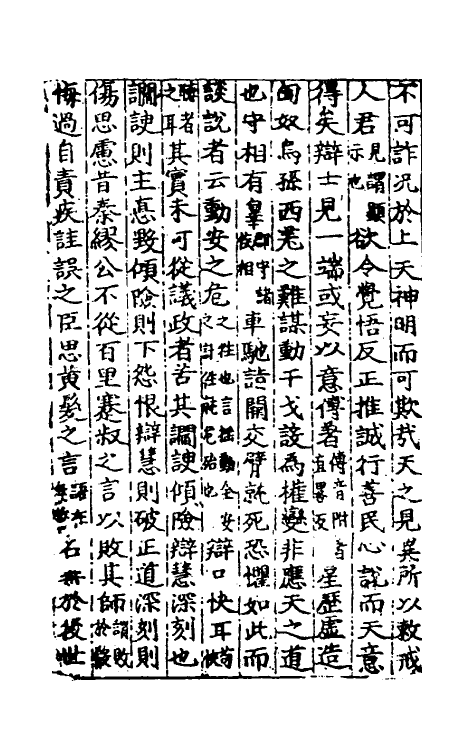 不可詐況於上天神明而可欺哉天之見異所以敕戒
人君見謂顯示也欲令覺悟反正推誠行善民心說而天意
得矣辯士見一端或妄以意傅著傅音附著音直畧反星歷虛造
匈奴烏孫西羌之難謀動干戈設為權變非應天之道
也守相有辠車馳詣闕交臂就死恐懼如此而
談說者云動安之危之往也言搖動全安之計往就危殆也辯口快耳
聽者之耳其實未可從議政者苦其讇諛傾險辯慧深刻也
讇諛則主悳毀傾險則下怨恨辯慧則破正道深刻則
傷恩慮昔秦繆公不從百里蹇叔之言以敗其師謂敗於殽
悔過自責疾詿誤之臣思黃髮之言名垂於後世